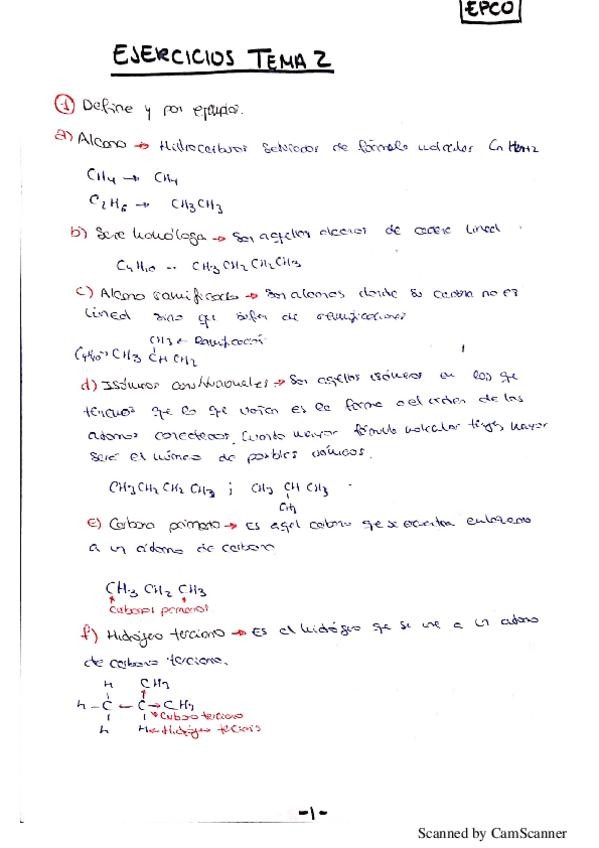 EPCO
EJERCICIOS TEMA 2
① Define y pon ejemplos.
a) Alcano → Hidrocarburos saturados de fórmula molecular CnH2n+2
CH4 → CH4
C2H6 → CH3CH3
b) Serie homóloga → Son aquellos alcanos de cadena lineal
C4H10 -- CH3CH2CH2CH3
c) Alcano ramificado → Son alcanos donde su cadena no es
lineal sino que sufre de ramificaciones
CH3 ← Ramificación
C4H10 → CH3 CH CH2
d) Isómeros constitucionales → Son aquellos isómeros en los que
que lo que varía es la forma o el orden de los
átomos conectados. Cuanto mayor fórmula molecular tenga mayor
será el número de posibles isómeros.
CH3CH2CH2CH3 ; CH3 CH CH3
CH3
e) Carbono primario → Es aquel carbono que se encuentra enlazado
a un átomo de carbono
CH3 CH2 CH3
Carbonos primarios
f) Hidrógeno terciario → Es el hidrógeno que se une a un átomo
de carbono terciario.
H CH3
H - C - C → CH3
Carbono terciario
H H ← Hidrógeno terciario
-1-
Scanned by CamScanner